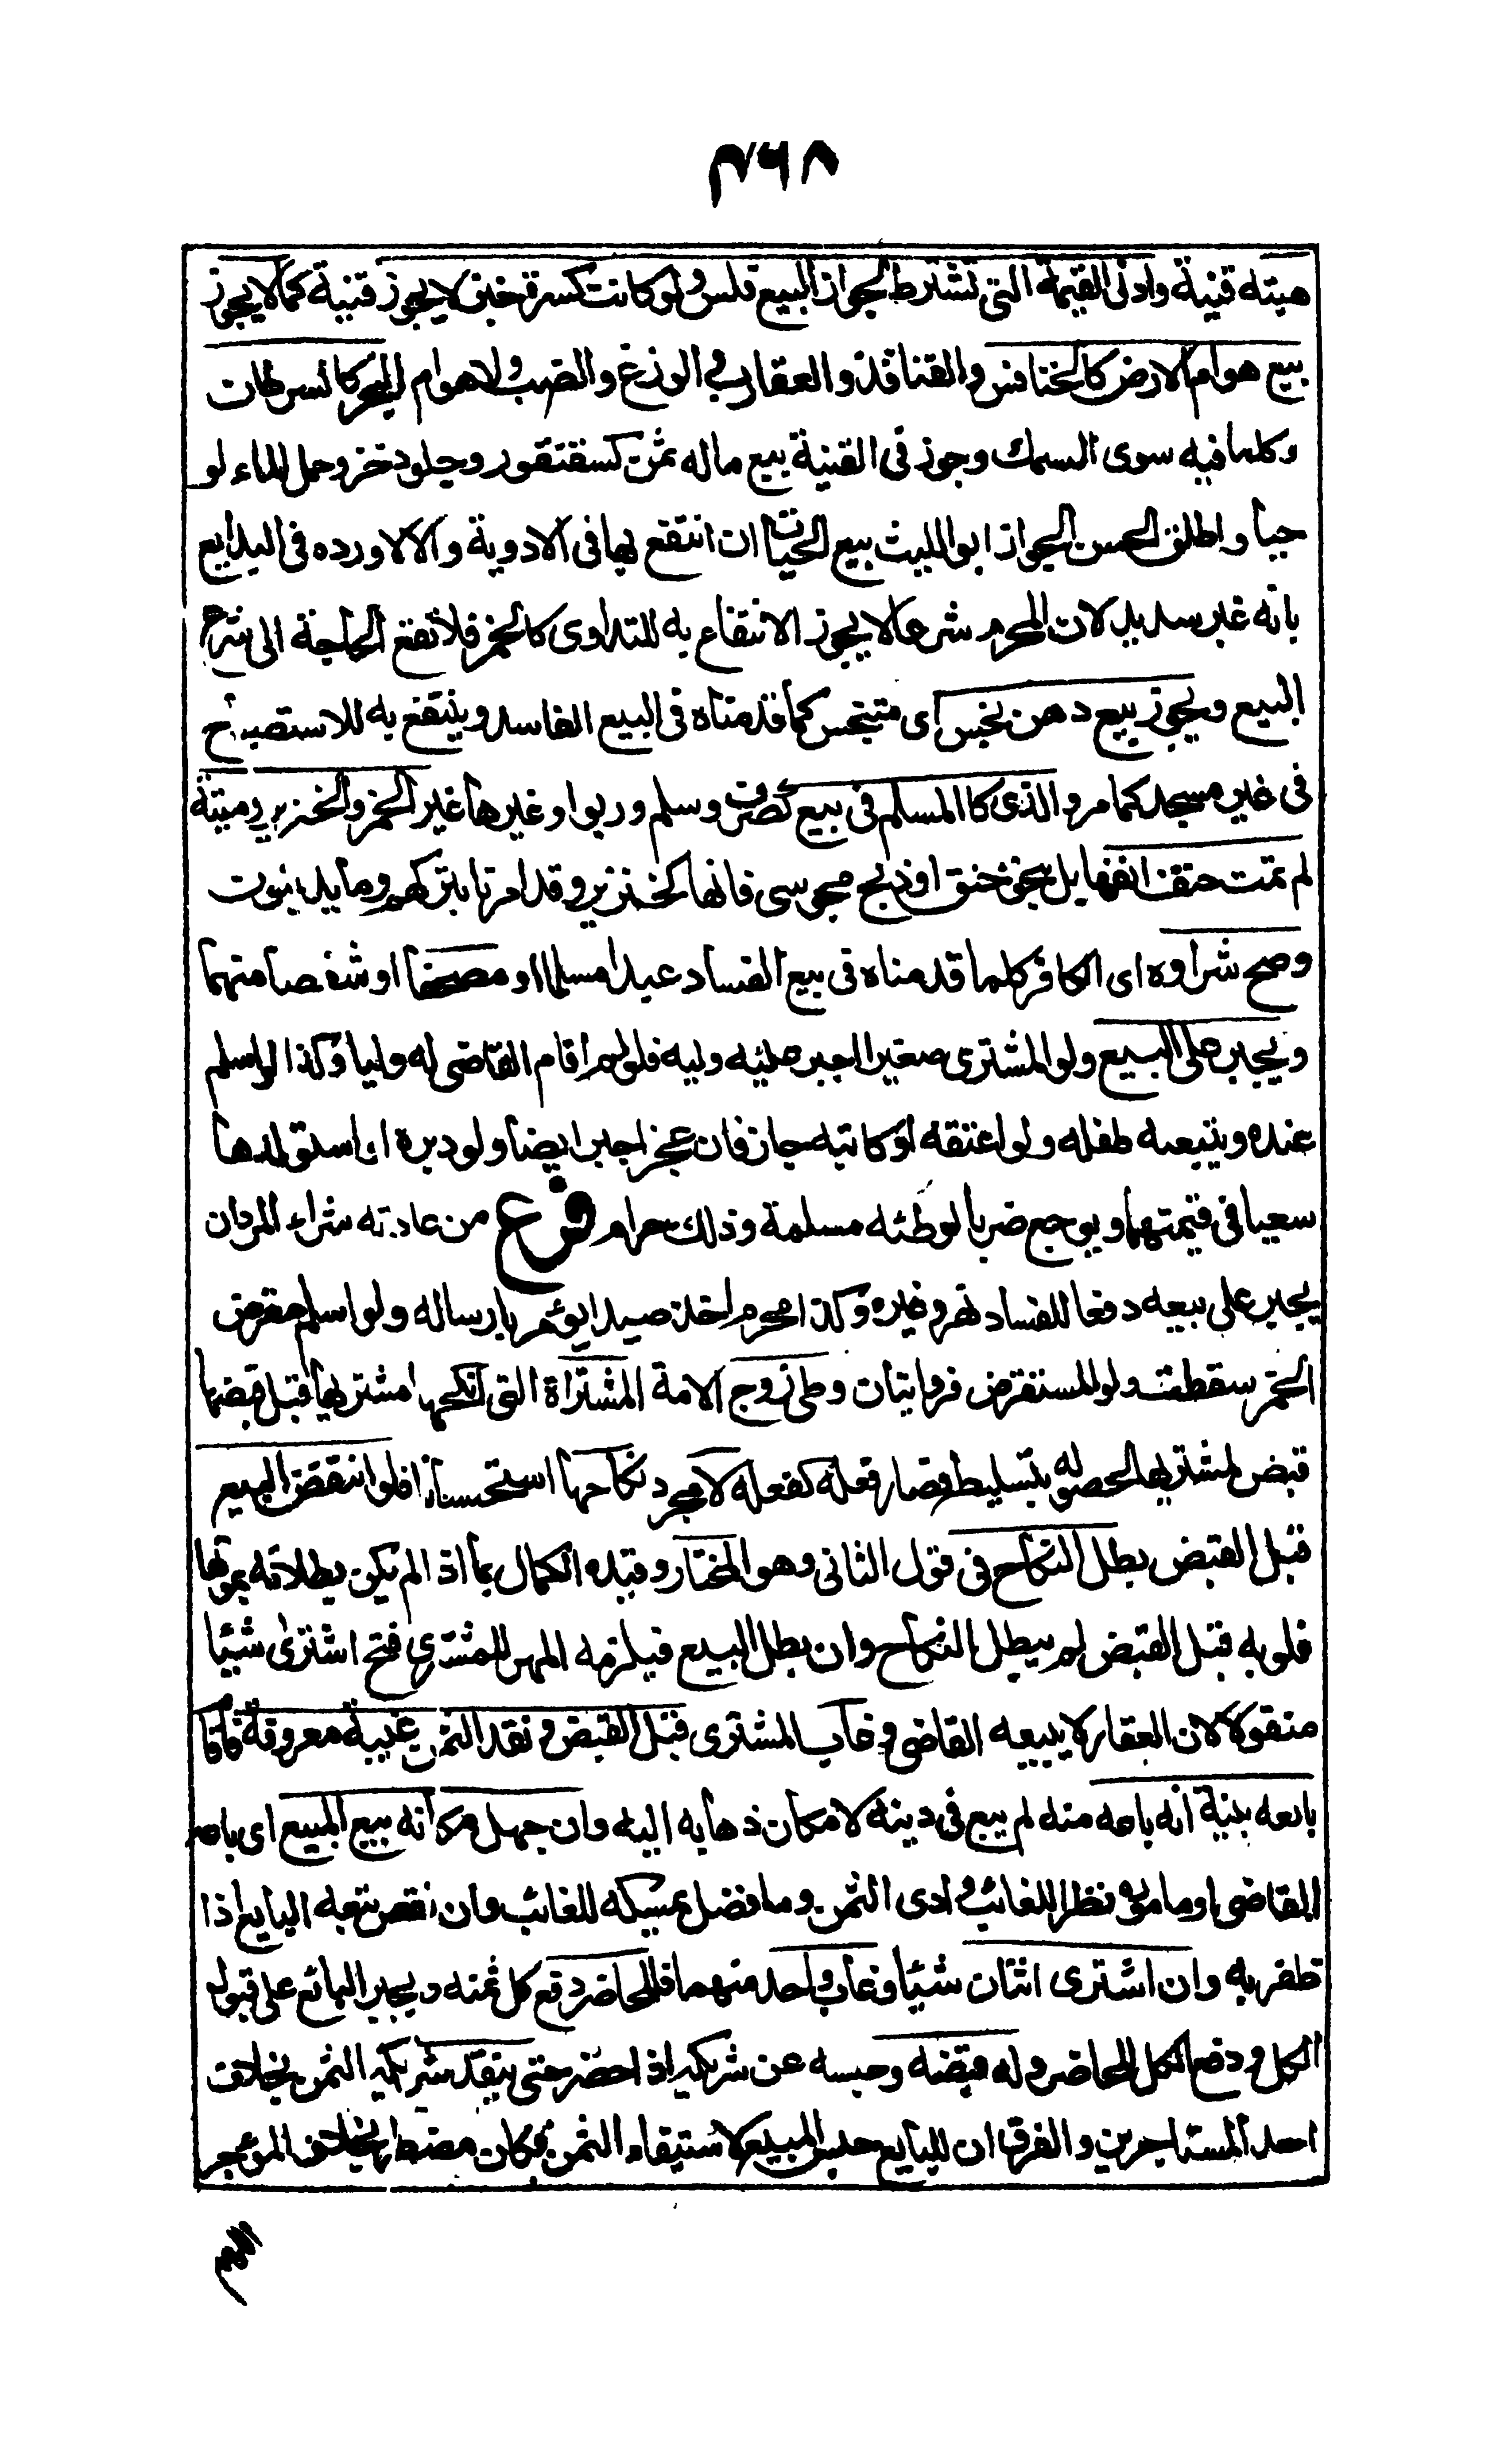 ٣٦٨
هبته قنية وادنى القيمة التى تشترط لجواز البيع فلس ولو كانت كسرة خبز لا يجوز قنية كما لا يجوز
بيع هوام الارض كالخنافس والقنافذ والعقارب والوزغ والضب ولا هوام البحر كالسرطان
وكلما فيه سوى السمك وجوز فى القنية بيع ماله ثمن كسقنقور وجلود خز وجمل الماء لو
حيا واطلق الحسن الجواز ابو الليث بيع الحيات ان انتفع بها فى الادوية والا لا ورده فى البدايع
بانه غير سديد لان المحرم شرعا لا يجوز الانتفاع به للتداوى كالخمر فلا تقع الحاجة الى شرع
البيع ويجوز بيع دهن نجس اى متنجس كما قدمناه فى البيع الفاسد وينتفع به للاستصباح
فى غير مسجد كما مر والذى كا المسلم فى بيع كصرف وسلم وربوا وغيرها غير الخمر والخنزير وميتة
لم تمت حتف انفها بل بنحو خنق او ذبح مجوسى فانها كخنزير وقد امرنا بتركهم وما يدينون
وصح شراوه اى الكافر كلما قدمناه فى بيع الفساد عبدا مسلما او مصحفا او شقصا منهما
ويجبر على البيع ولو المشترى صغيرا اجبر عليه وليه فلو لم اقام القاضى له وليا وكذا لو اسلم
عنده ويتبعه طفله ولو اعتقه او كاتبه جاز فان عجز اجبر ايضا ولو دبره او استولدها
سعيا فى قيمتهما ويوجع ضربا لوطئه مسلمة وذلك حرام فرع من عادته شراء المردان
يجبر على بيعه دفعا للفساد نهر وغيره وكذا محرم اخذ صيدا يؤمر بارساله ولو اسلم مقرض
الخمر سقطت ولو المستقرض فروايتان وطئ زوج الامة المشتراة التى انكحها مشتريها قبل قبضها
قبض لمشتريها لحصوله بتسليطه فصار فعله كفعله لا مجرد نكاحها استحسانا فلو انتقض البيع
قبل القبض بطل النكاح فى قول الثانى وهو المختار وقيده الكمال بما اذا لم يكن بطلانه بموتها
فلو به قبل القبض لم يبطل النكاح وان بطل البيع فيلزمه المهر للمشترى فتح اشترى شيئا
منقولا لان العقار لا يبيعه القاضى وغاب المشترى قبل القبض ونقد الثمن غيبة معروفة فاقام
بائعه بينة انه باعه منه لم يبع فى دينه لامكان ذهابه اليه وان جهل مكانه بيع المبيع اى باعه
القاضى او ماموره نظرا للغائب وادى الثمن وما فضل يمسكه للغائب وان نقص يتبعه البايع اذا
ظفر به وان اشترى اثنان شيئا وغاب واحد منهما فللحاضر دفع كل ثمنه ويجبر البائع على قبول
الكل ودفع الكل للحاضر وله قبضه وحبسه عن شريكه اذا حضر حتى ينقد شريكه الثمن بخلاف
احد المستاجرين والفرق ان للبايع حبس المبيع لاستيفاء الثمن فكان مضطرا بخلاف المؤجر